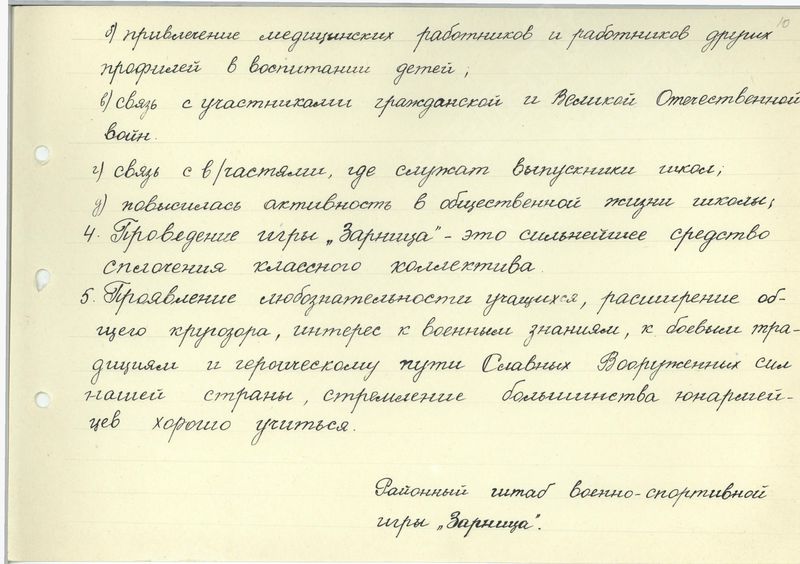 10
б) привлечение медицинских работников и работников других
профилей в воспитании детей;
в) связь с участниками гражданской и Великой Отечественной
войн.
г) связь с в/частями, где служат выпускники школ;
д) повысилась активность в общественной жизни школы;
4. Проведение игры „Зарница" - это сильнейшее средство
сплочения классного коллектива.
5. Проявление любознательности учащихся, расширение об-
щего кругозора, интерес к военным знаниям, к боевым тра-
дициям и героическому пути Славных Вооруженных сил
нашей страны, стремление большинства юнармей-
цев хорошо учиться.
Районный штаб военно-спортивной
игры „Зарница".